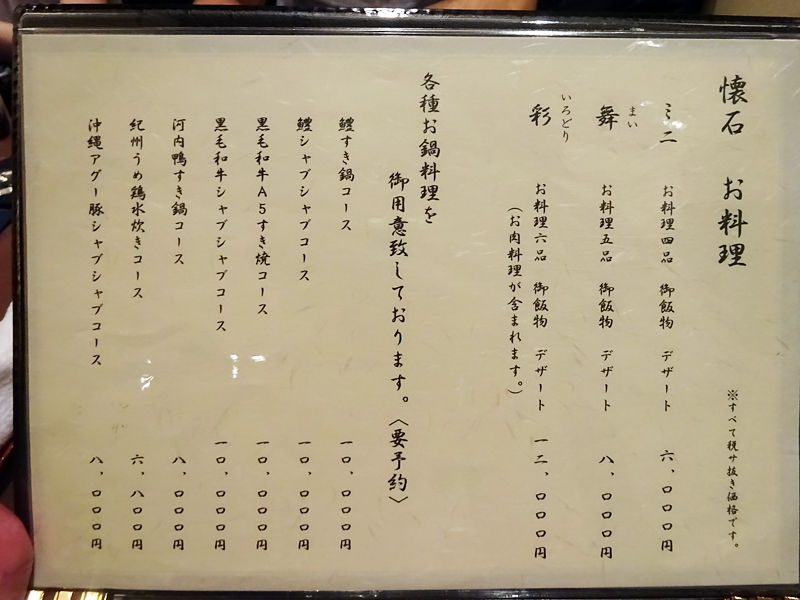 懐石 お料理
※すべて税サ抜き価格です。
ミニ お料理四品 御飯物 デザート 六、〇〇〇円
まい
舞 お料理五品 御飯物 デザート 八、〇〇〇円
いろどり
彩 お料理六品 御飯物 デザート 一二、〇〇〇円
(お肉料理が含まれます。)
各種お鍋料理を
御用意致しております。〈要予約〉
鱧すき鍋コース 一〇、〇〇〇円
鱧シャブシャブコース 一〇、〇〇〇円
黒毛和牛A5すき焼コース 一〇、〇〇〇円
黒毛和牛シャブシャブコース 一〇、〇〇〇円
河内鴨すき鍋コース 八、〇〇〇円
紀州うめ鶏水炊きコース 六、八〇〇円
沖縄アグー豚シャブシャブコース 八、〇〇〇円